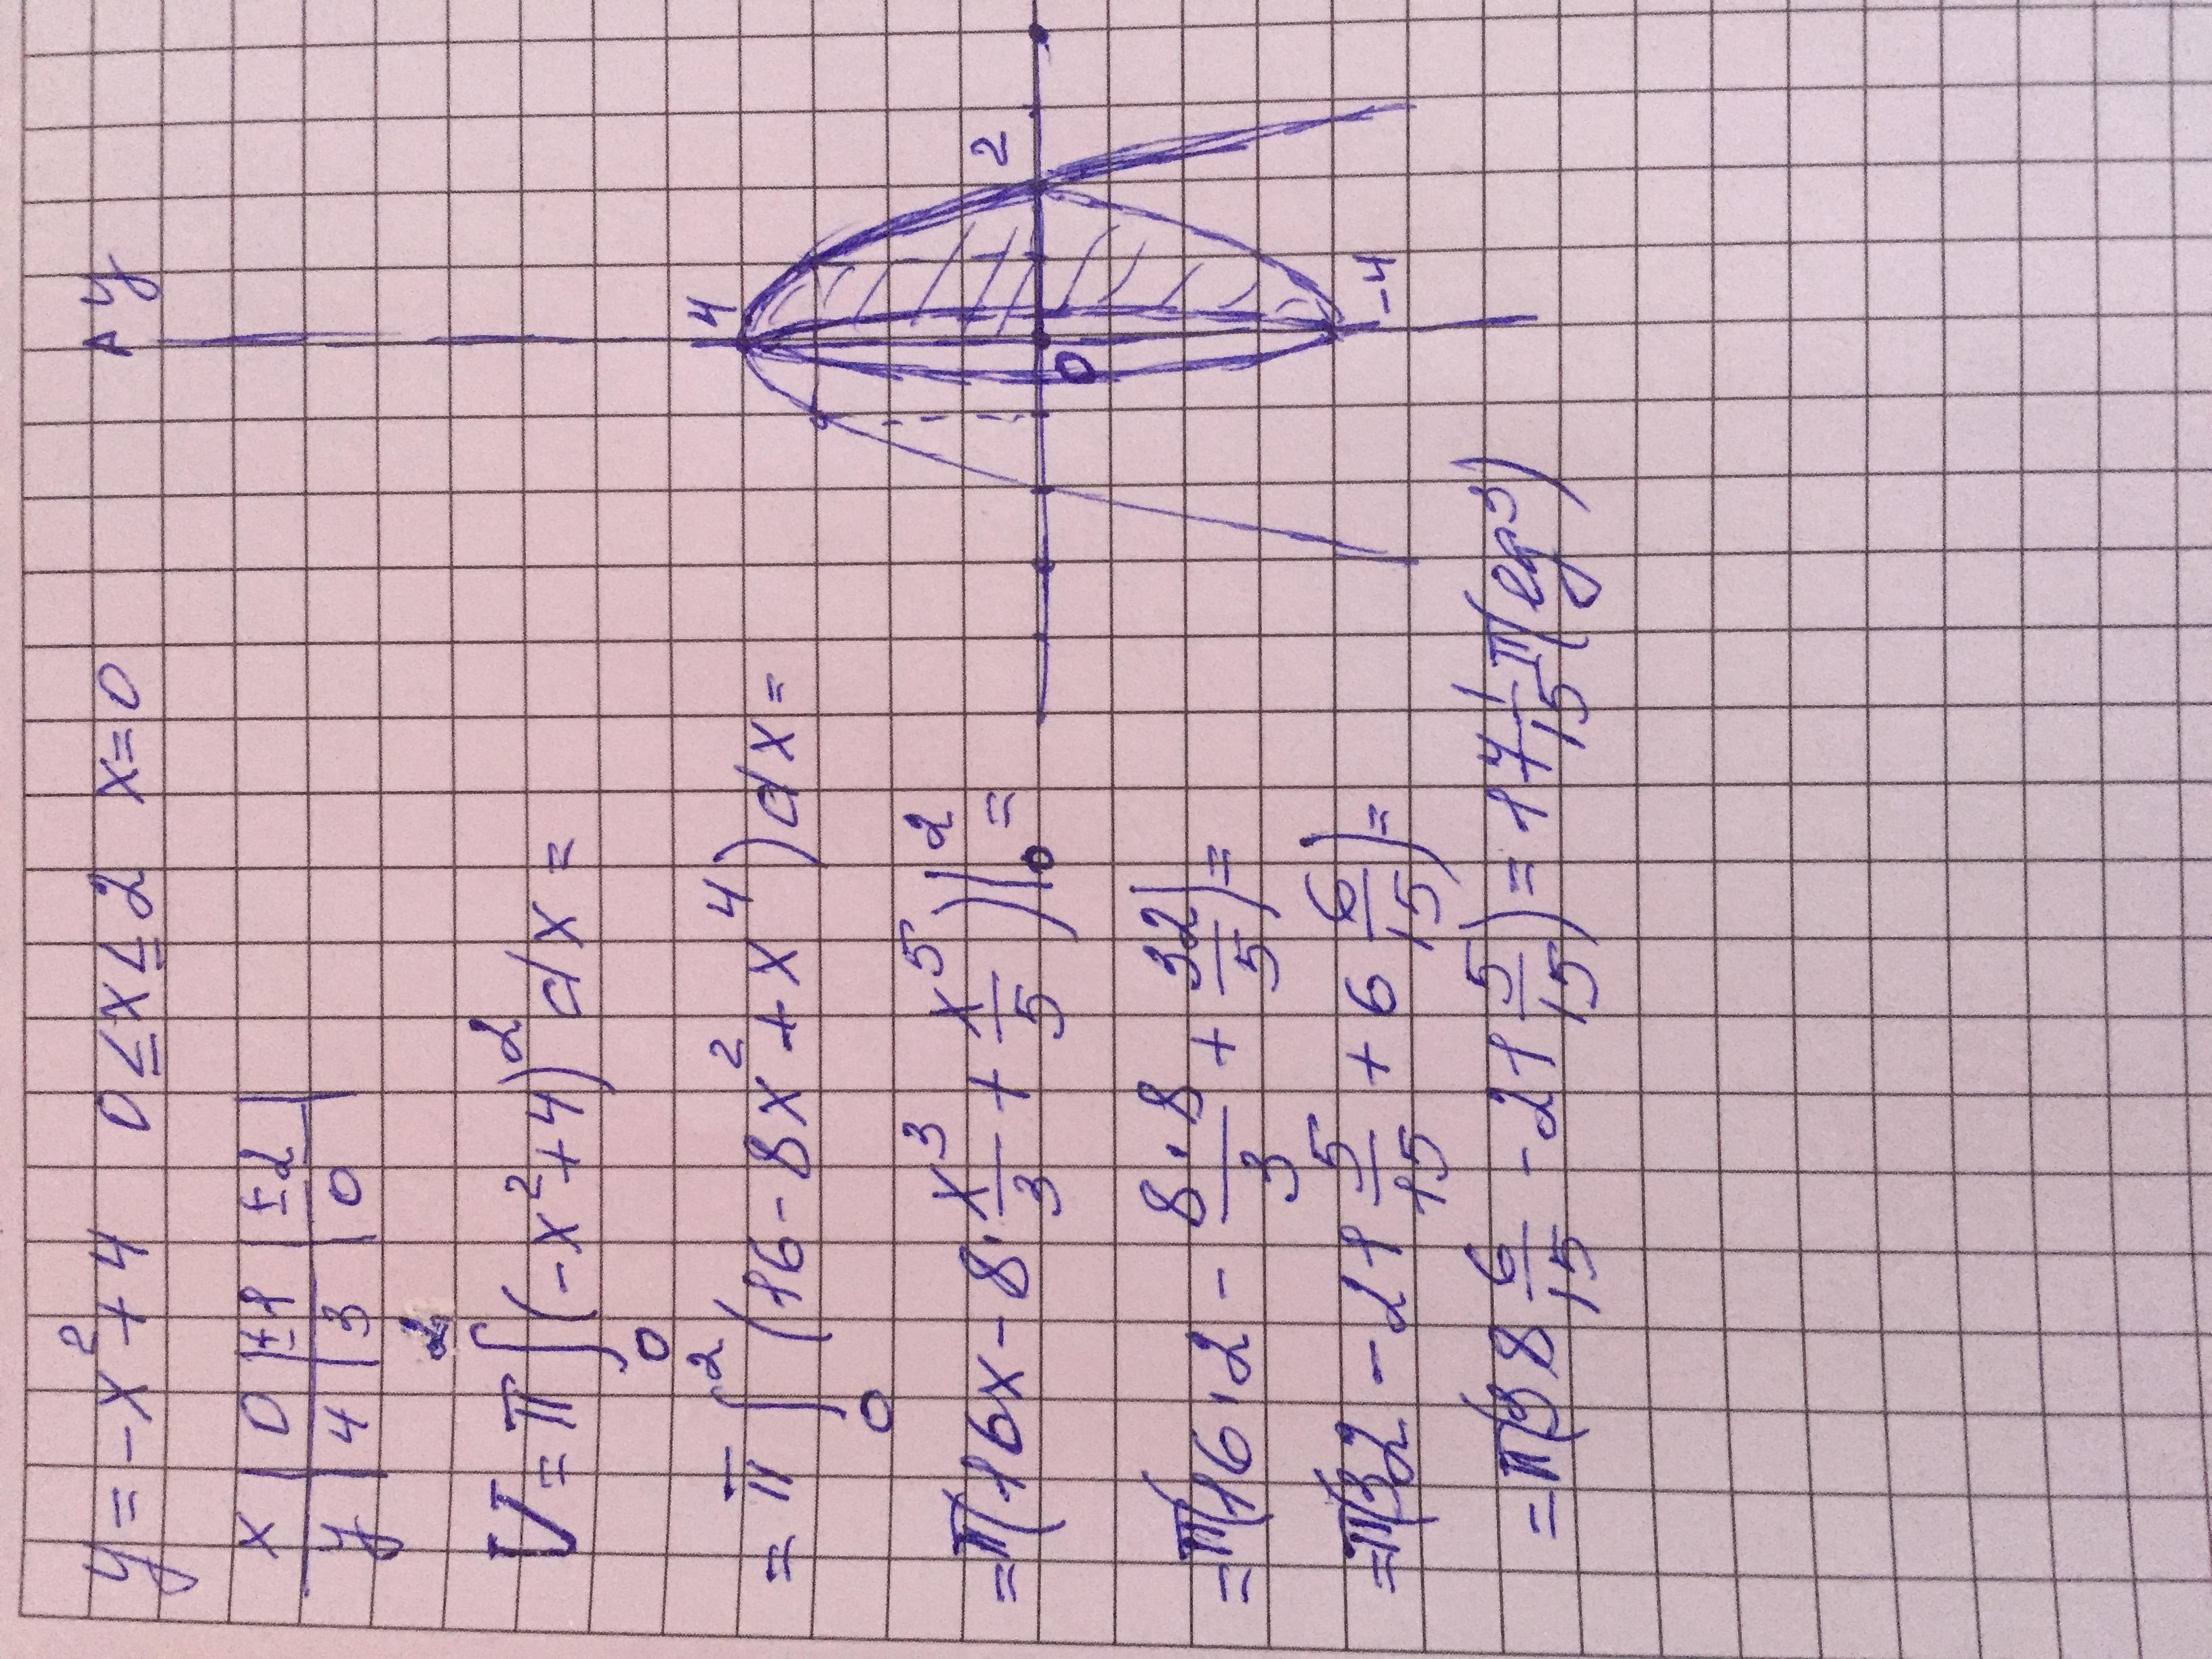 y = -x² + 4   0 ≤ x ≤ 2   x = 0
x | 0 | ±1 | ±2 |
y | 4 | 3 | 0
V = π ∫₀² (-x² + 4)² dx =
= π ∫₀² (16 - 8x² + x⁴) dx =
= π(16x - 8·x³/3 + x⁵/5)|₀² =
= π(16·2 - 8·8/3 + 32/5) =
= π(32 - 21 5/15 + 6 6/15) =
= π(38 6/15 - 21 5/15) = 17 1/15 π (ед³)
y
4
2
0
-4